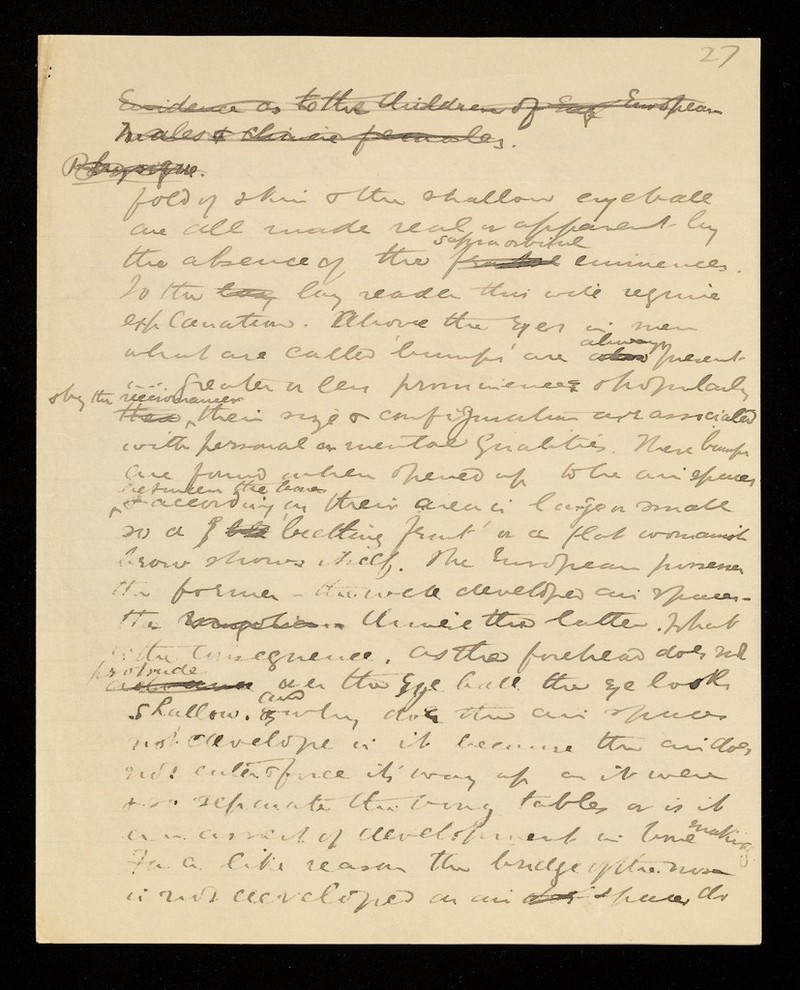 27
Evidence as to the Children of Eng European
Males & Chinese females.
Physique.
fold of skin & the shallow eyeball
are all made real or apparent by
supraorbital
the absence of the frontal eminences.
To the lay lay reader this will require
explanation. Above the eyes in men
always
what are called 'bumps' are also present
in greater or less prominence & popularly
& by the necromancer
then their size & configuration are associated
with personal or mental qualities. These bumps
are found when opened up to be air spaces
between the bones
& according as their area is large or small
so a 'beetling front' or a flat womanish
brow shows itself. The European possesses
the former - the well developed air spaces -
the Mongolian Chinese the latter. What
is the consequence, as the forehead does not
protrude
over the eye ball the eye looks
and
shallow. why does the air spaces
not develope is it because the air does
not enter & force its way up as it were
& so separate the bony tables or is it
an arrest of development in bone making
For a like reason the bridge of the nose
is not developed as air spaces do